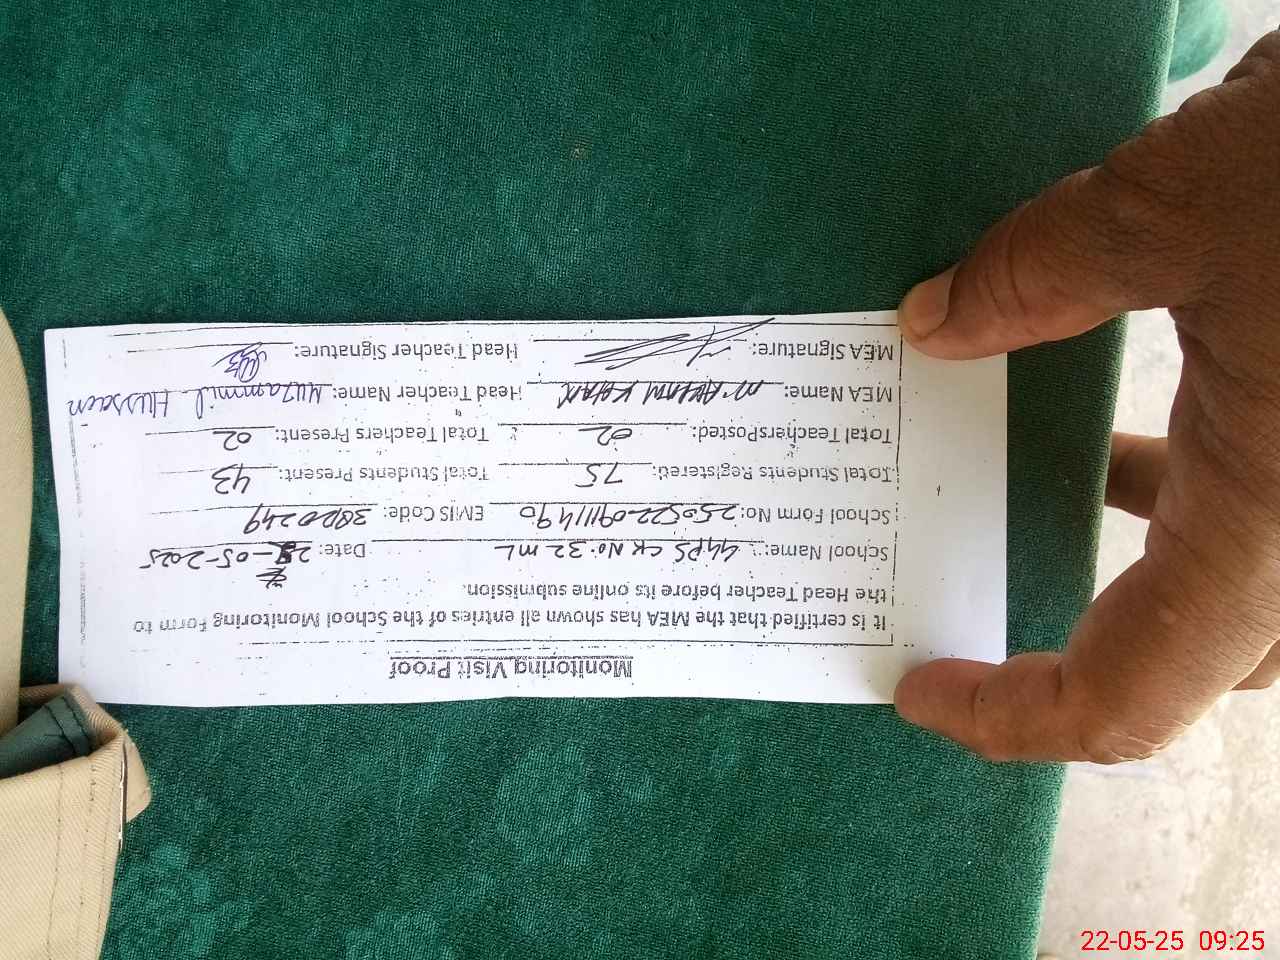 Monitoring Visit Proof
It is certified that the MEA has shown all entries of the School Monitoring Form to
the Head Teacher before its online submission.
School Name: GGPS CK No. 32 ML Date: 22-05-2025
School Form No: 250522-09111490 EMIS Code:
Total Students Registered: 75 Total Students Present: 43
Total TeachersPosted: 02 Total Teachers Present: 02
MEA Name: M. AKRAM KHAN Head Teacher Name: Muzammil Hussain
MEA Signature: Head Teacher Signature:
22-05-25 09:25